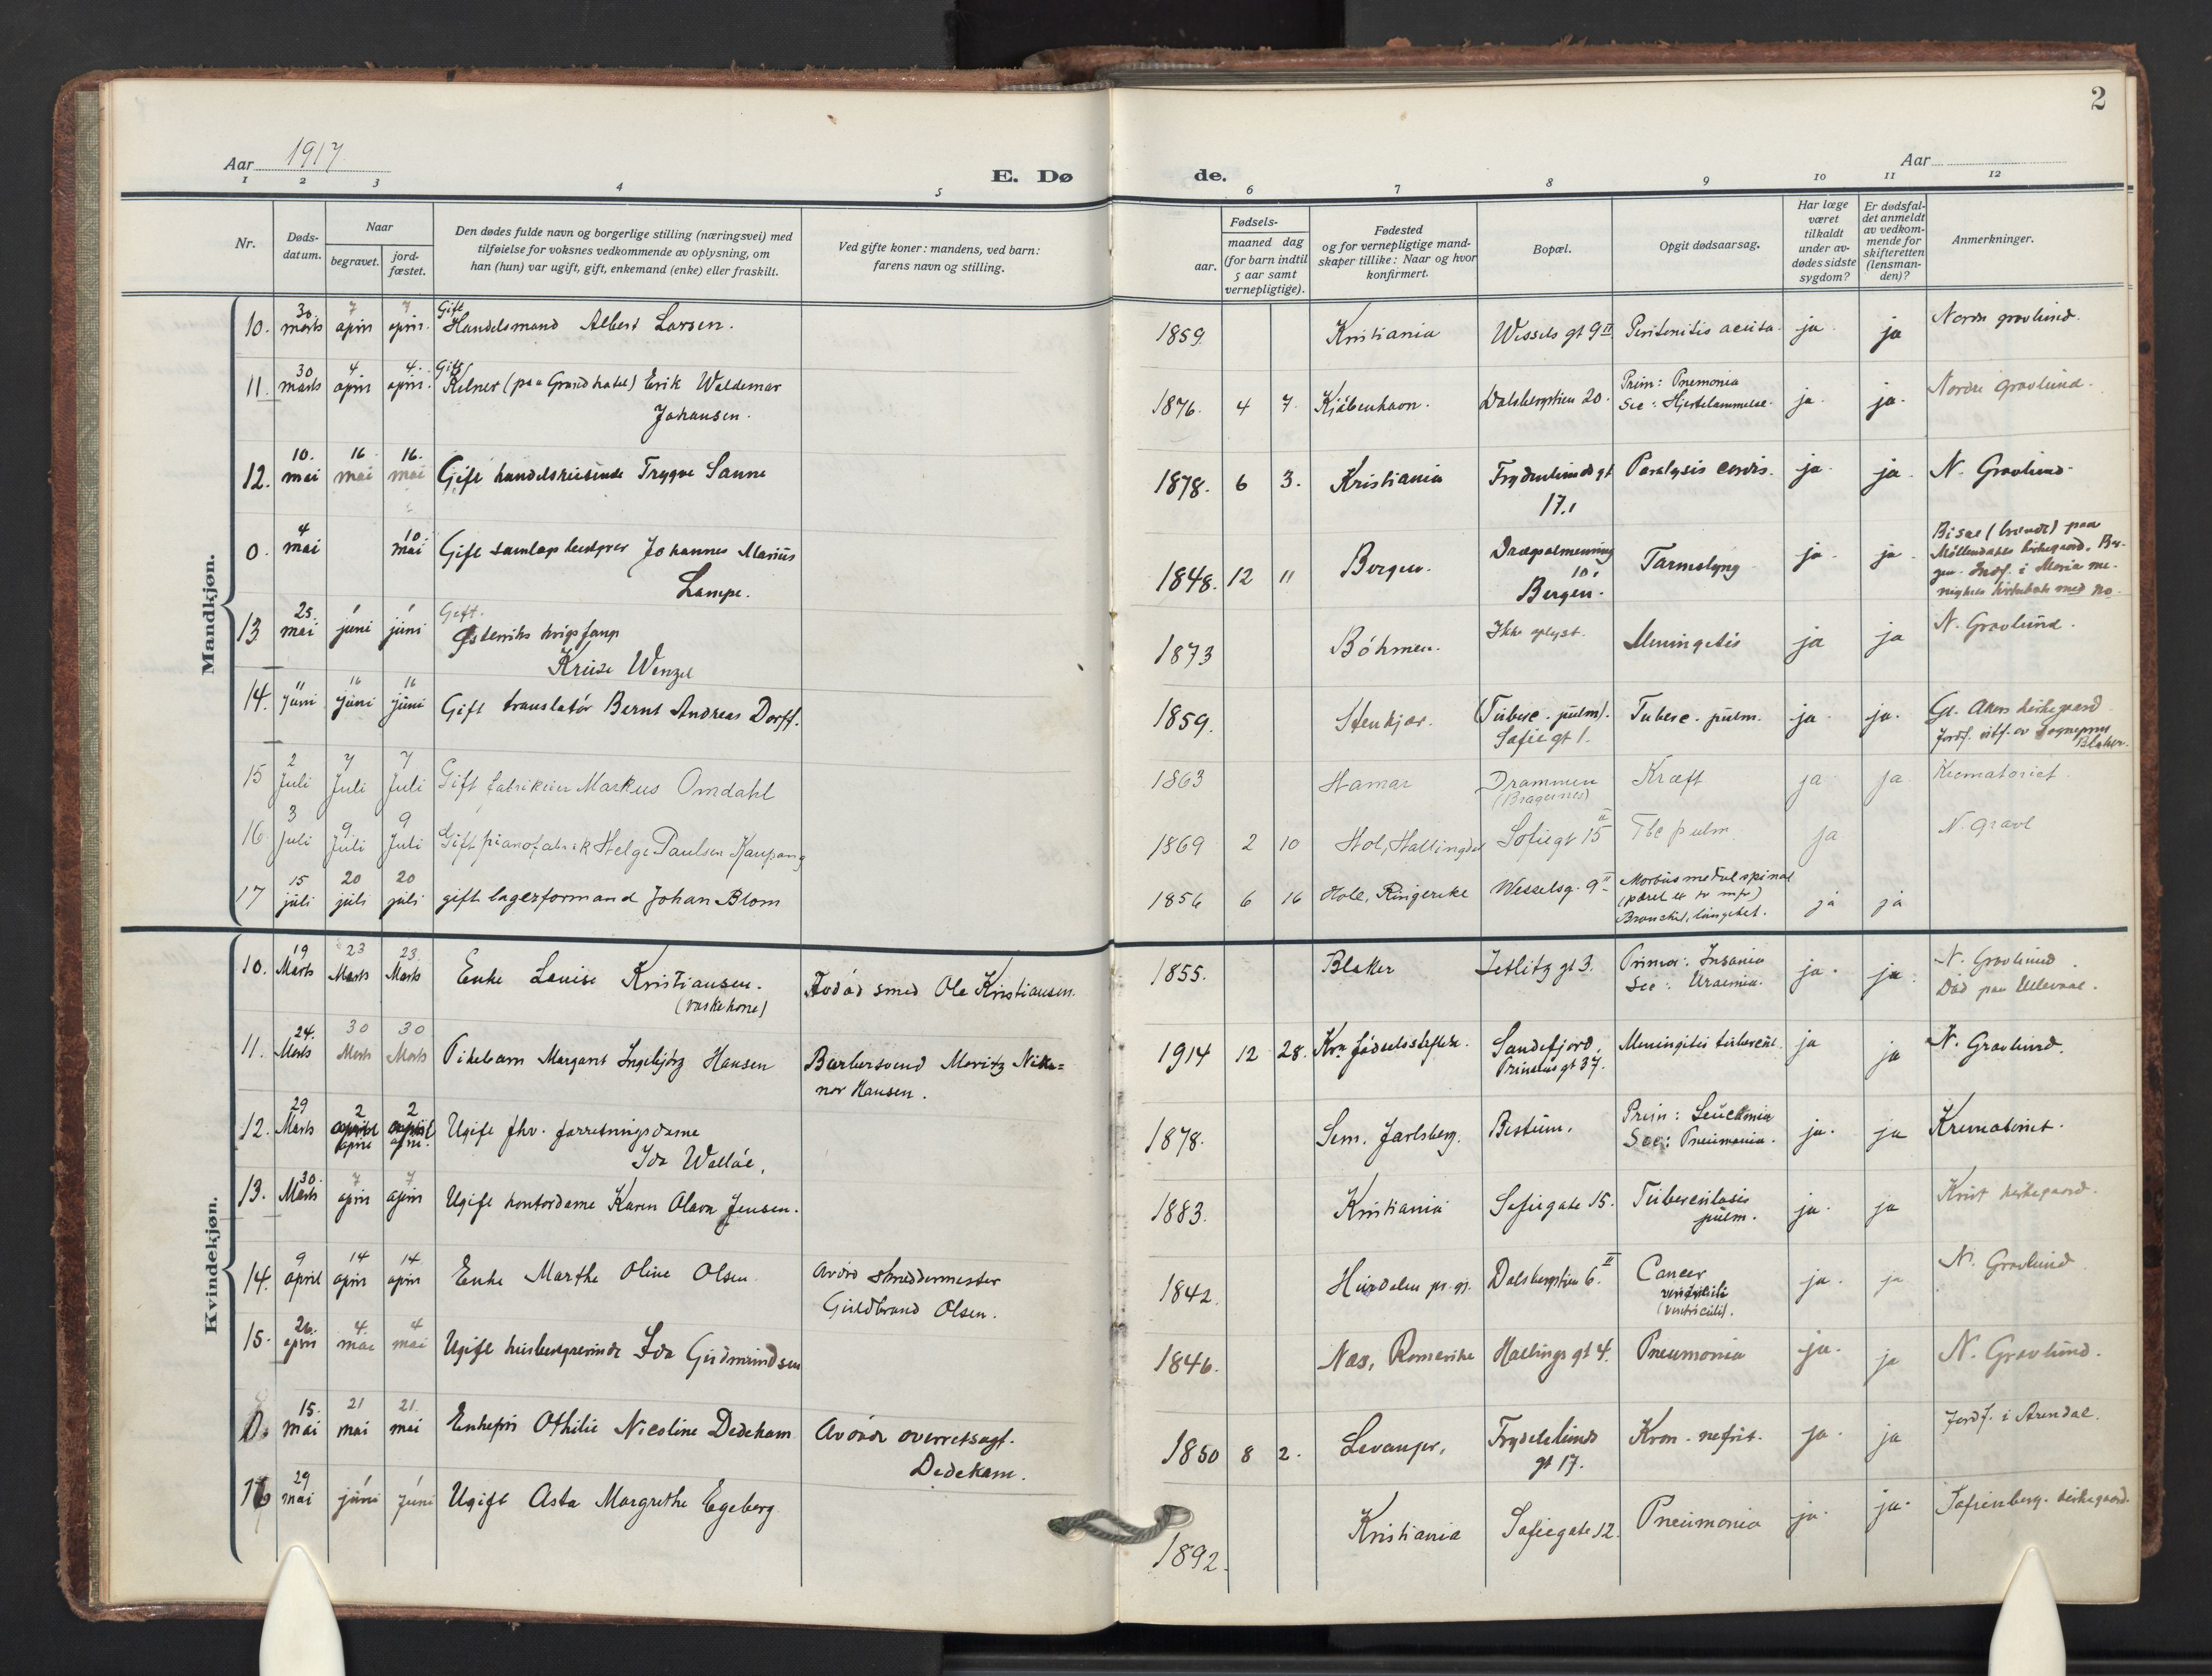 2
Aar 1917.
Aar
E. Dø
de.
1 2 3 4 5 6 7 8 9 10 11 12
Nr.
Døds-
datum.
Naar
begravet.
jord-
fæstet.
Den dødes fulde navn og borgerlige stilling (næringsvei) med
tilføielse for voksnes vedkommende av oplysning, om
han (hun) var ugift, gift, enkemand (enke) eller fraskilt.
Ved gifte koner: mandens, ved barn:
farens navn og stilling.
Fødsels-
aar.
maaned dag
(for barn indtil
5 aar samt
vernepligtige).
Fødested
og for vernepligtige mand-
skaper tillike: Naar og hvor
konfirmert.
Bopæl.
Opgit dødsaarsag.
Har læge
været
tilkaldt
under av-
dødes sidste
sygdom?
Er dødsfal-
det anmeldt
av vedkom-
mende for
skifteretten
(lensman-
den)?
Anmerkninger.
Mandkjøn.
30 7 7 Gift
10. marts april april. Handelsmand Albert Larsen. 1859. Kristiania Wessels gt 9 II Peritonitis acuta. ja. ja Nordre gravlund.
30 4 4. Gift
11. marts april april. Kelner (paa Grand hotel) Erik Waldemar
Johansen. 1876. 4 7. Kjøbenhavn. Dalsbergstien 20.
Prim: Pnemonia
Sec: Hjertelammelse. ja. ja. Nordre Gravlund.
10. 16 16.
12. mai mai mai Gift handelsreisende Trygve Sanne 1878. 6 3. Kristiania Frydenlunds gt
17. Paralysis cordis. ja. ja. N. Gravlund.
4 10.
0. mai mai Gift samlags bestyrer Johannes Marius
Lampe. 1848. 12 11 Bergen.
10
Bergen. Tarmslyng ja. ja.
Bisat (brændt) paa
Møllendals kirkegaard, Ber-
gen. Indf. i Maria me-
nighets kirkebok med no.
25. 1 1 Gift.
13 mai juni juni Østerriks krigsfange
Kruse Wenzel 1873 Böhmen. Ikke oplyst. Meningitis ja ja N. Gravlund.
11 16 16
14. juni juni juni Gift translatør Bernt Andreas Dorff. 1859. Stenkjær. (Tuberc. pulm).
Sofie gt 1. Tuberc. pulm. ja. ja. Gl. Akers kirkegaard
Jordf. utf. av Sogneprest
Blaker.
2 7 7
15 Juli Juli Juli Gift fabrikeier Markus Omdahl 1863 Hamar Drammen
(Bragernes) Kræft ja ja Krematoriet.
3 9 9
16. Juli Juli Juli Gift pianofabrik Helge Paulsen Kaupang 1869 2 10 Hol, Hallingdal Sofiegt 15 II Tbc pulm ja N. Gravl
15 20 20
17 juli juli juli gift lagerformand Johan Blom 1856 6 16 Hole, Ringerike Wesselsg. 9 II Morbus medul spinal
Bronchit, ja ja
Kvindekjøn.
19 23 23
10. Marts Marts Marts Enke Louise Kristiansen.
(vaskekone) Avdød smed Ole Kristiansen. 1855. Blaker Jetlitz gt 3. Primær: Insania
Sec: Uraemia. ja. ja. N. Gravlund.
Død paa Ullevaal.
24. 30 30
11. Marts Marts Marts Pikebarn Margant Ingebjørg Hansen Barbersvend Moritz Nika=
nor Hansen. 1914 12 28. Kra Fødselsstiftelse. Sandefjord,
Prinsens gt 37. Meningitis tuberculi. ja ja N. Gravlund.
29 2 2
12. Marts april april
april april. Ugift fhv. forretningsdame
Ida Walløe. 1878. Sem. Jarlsberg. Bestum. Prim: Leucemia
Sec: Pneumonia. ja. ja Krematoriet.
30. 7 7
13. Marts april april Ugift kontordame Karen Olava Jensen. 1883. Kristiania Sofiegate 15. Tuberculosis
pulm. ja. ja Krist kirkegaard.
9 14 14
14. april april april Enke Marthe Oline Olsen. Avdød skreddermester
Guldbrand Olsen. 1842. Hurdalen pr. gj. Dalsbergstien 6. II Cancer
ventriculi
(ventriculi). ja. ja N. Gravlund
26. 4. 4
15. april mai mai Ugift husbestyrerinde Ida Gudmundsen 1846. Nes, Romerike Hallings gt 4. Pneumonia ja. ja N. Gravlund.
15. 21 21.
0. mai mai mai Enkefru Othilie Nicoline Dedekam Avdøde overretssagf.
Dedekam. 1850 8 2. Levanger. Frydenlunds
gt 17. Kron. nefrit. ja. ja Jordf. i Arendal.
29 1 1
16 mai juni juni Ugift Asta Margrethe Egeberg 1892. Kristiania Sofiegate 12. Pneumonia ja. ja. Sofienberg. kirkegaard.